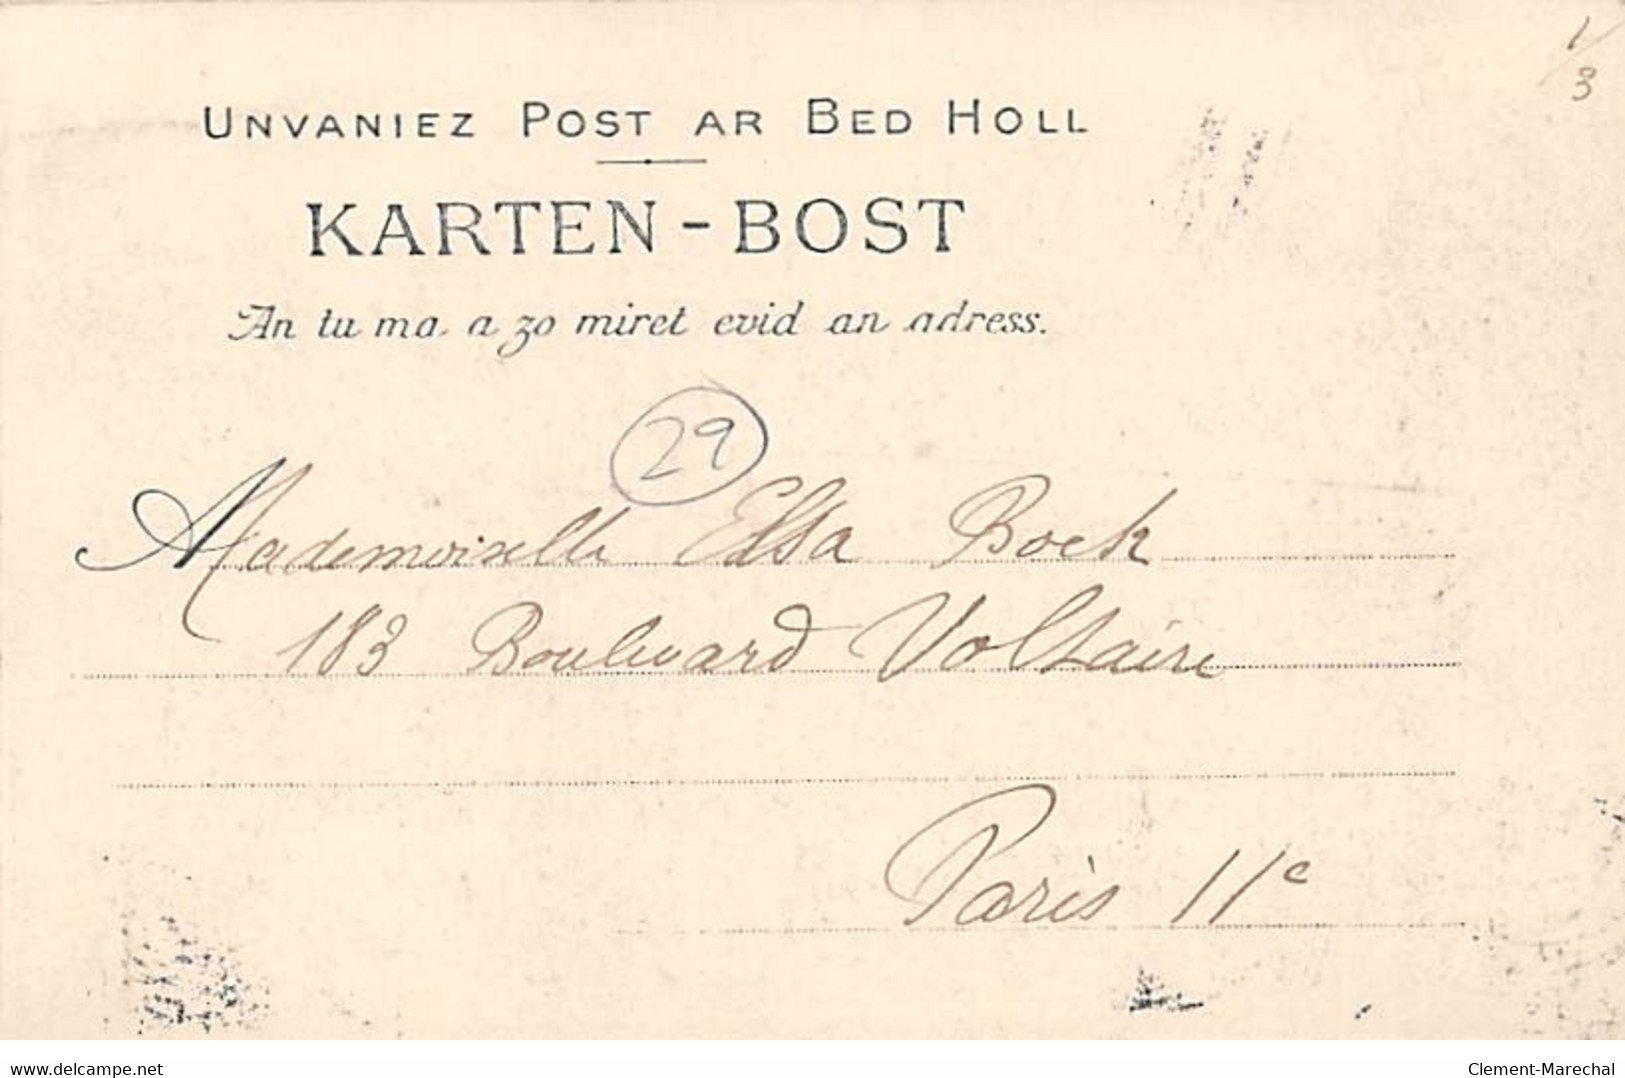 1/3
UNVANIEZ POST AR BED HOLL
KARTEN-BOST
An tu ma a zo miret evid an adress.
29
Mademoiselle Elsa Bock
183 Boulevard Voltaire
Paris 11e
delcampe.net
Clement-Marechal